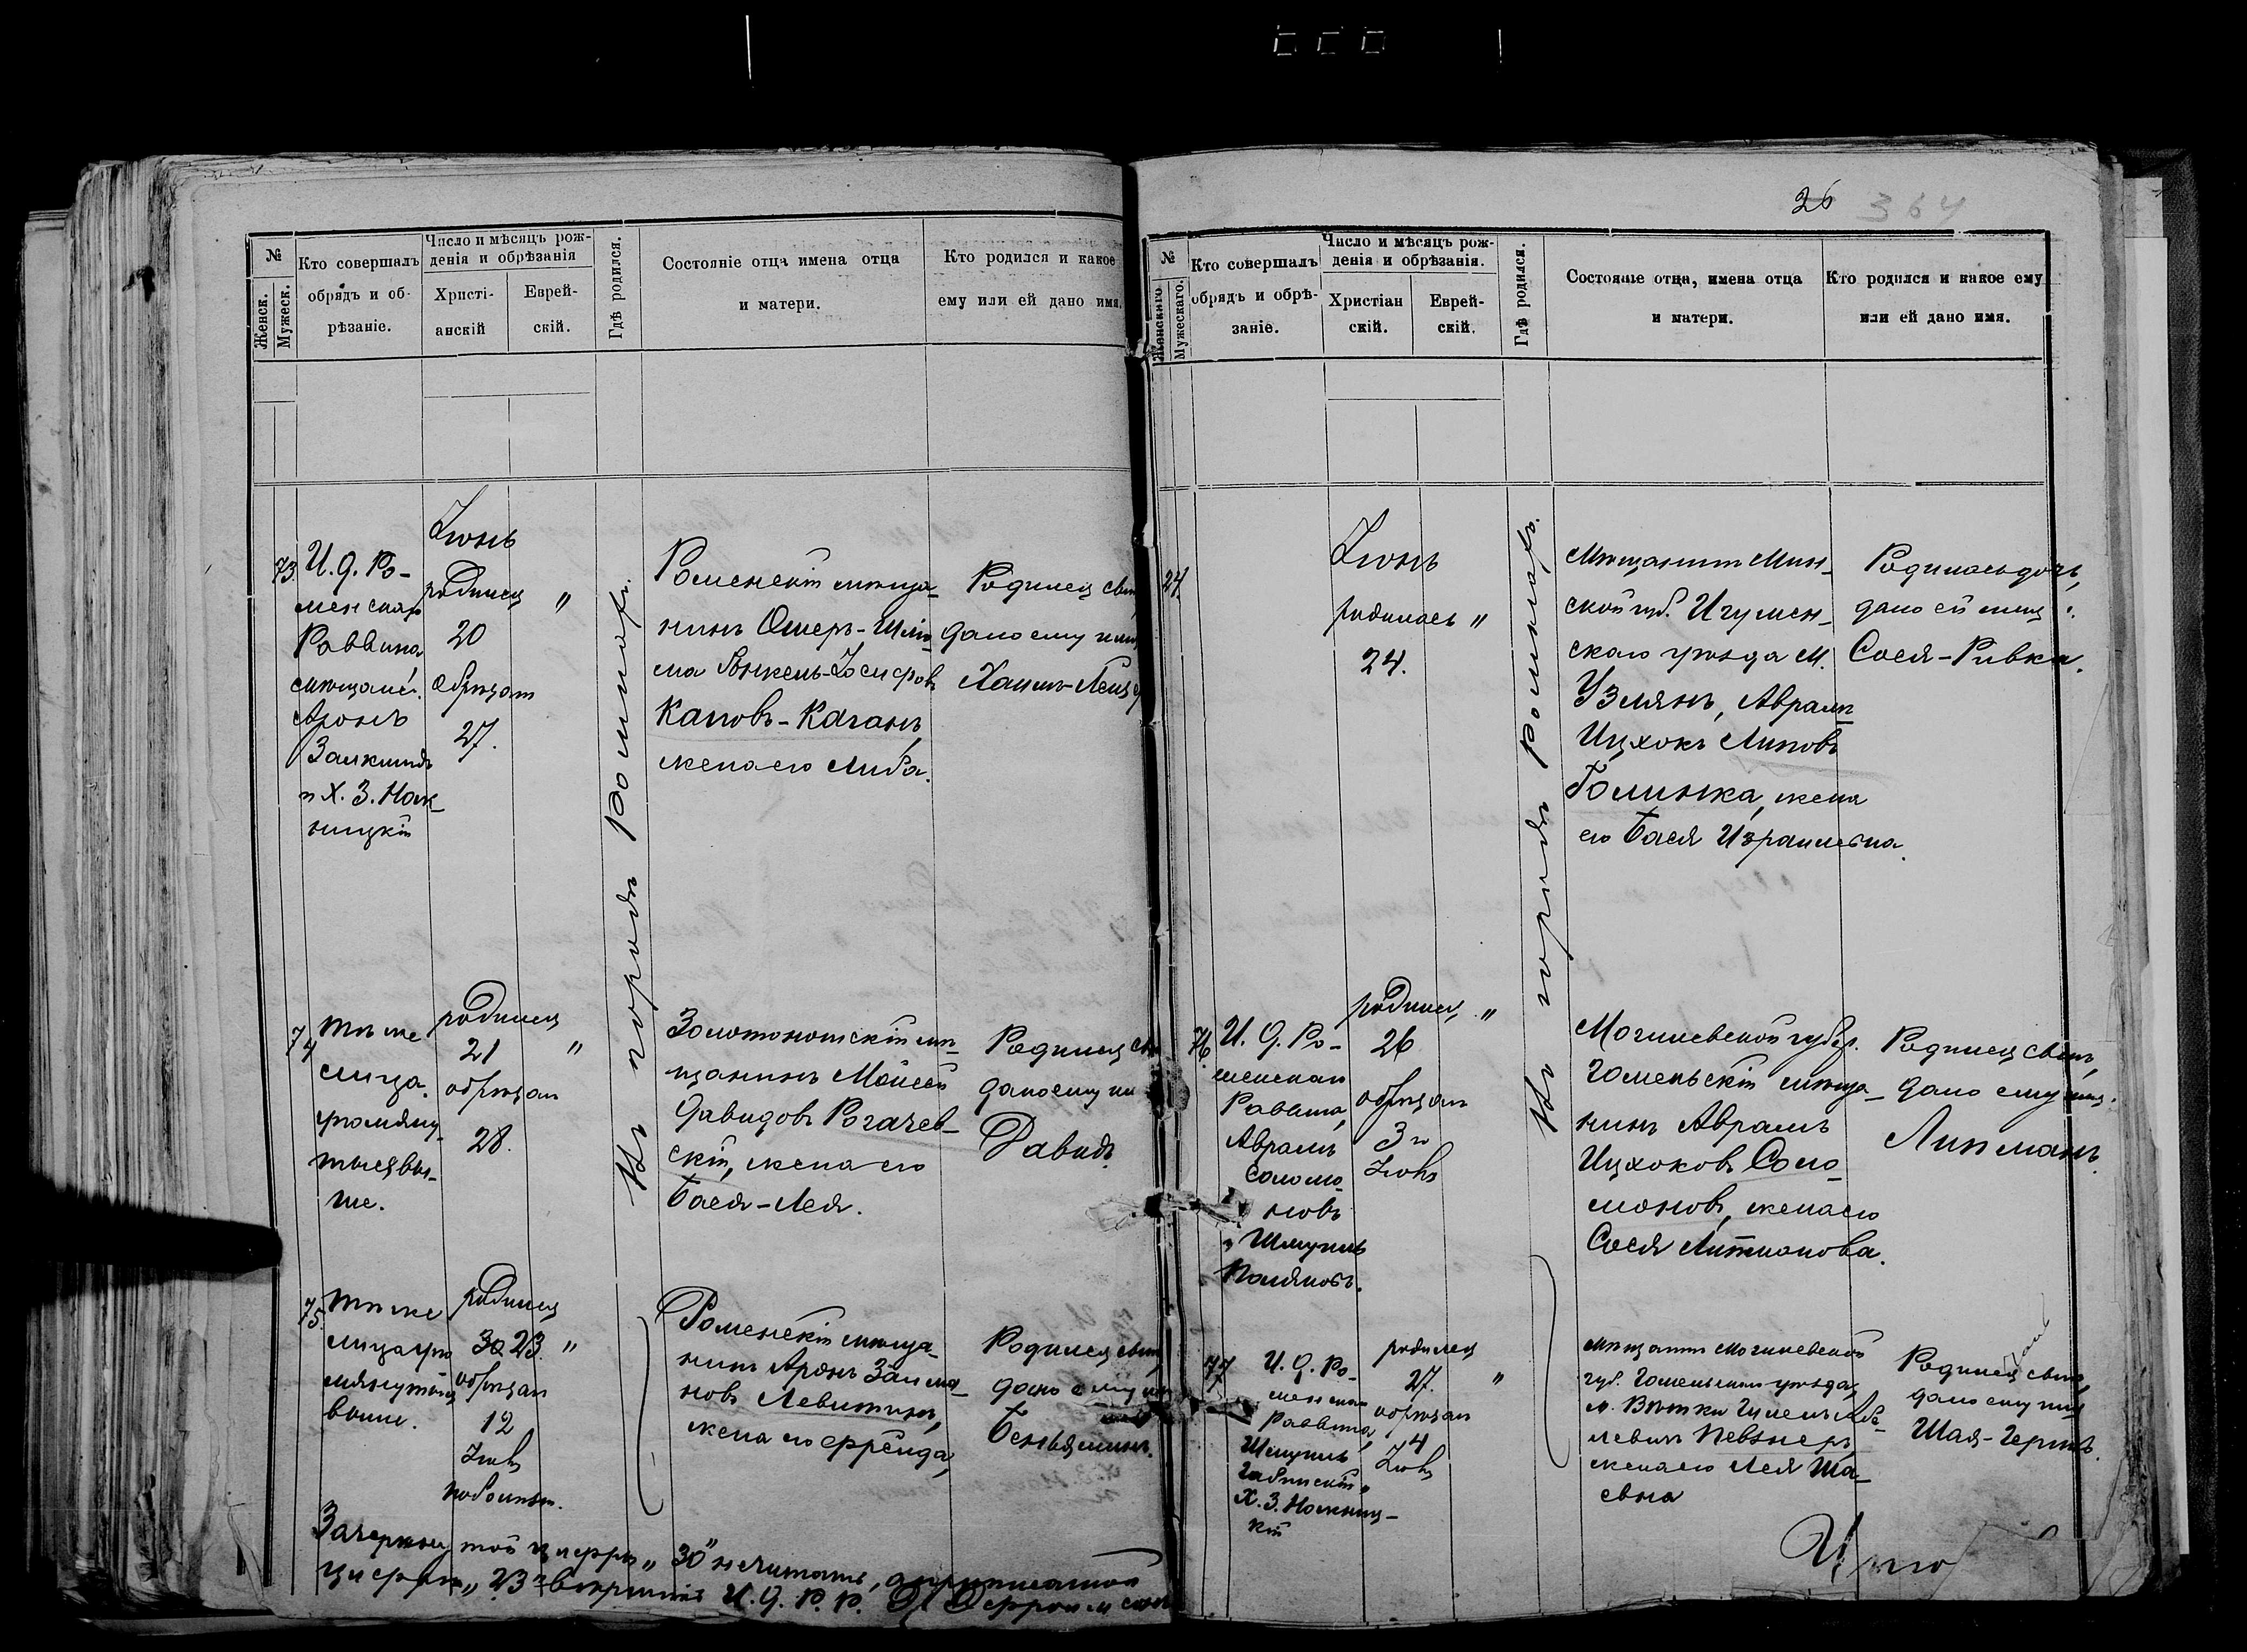 №
Женск.
Мужеск.
Кто совершалъ
обрядъ и об-
рѣзаніе.
Число и мѣсяцъ рож-
денія и обрѣзанія
Христі-
анскій
Еврей-
скій.
Гдѣ родился.
Состояніе отца имена отца
и матери.
Кто родился и какое
ему или ей дано имя.
Іюнь
73.
И. д. Ро-
менскаго
Раввина
мѣщане:
Аронъ
Залкиндъ
и Х. З. Ног-
ницкій
родился "
20
обрѣзан
27.
Въ городѣ Ромнахъ.
Роменскій мѣща-
нинъ Ошеръ-Шлі-
ма Янкель-Іосифовъ
Каповъ-Каганъ,
жена его Либа.
Родился сынъ
дано ему имя
Хаимъ-Лейзеръ
74
тѣ же
лица
упомяну-
тыя вы-
ше.
родился
21 "
обрѣзан
28.
Золотоношскій мѣ-
щанинъ Моисей
Давидовъ Рогачев-
скій, жена его
Бася-Лея.
Родился сынъ
дано ему имя
Давидъ.
75.
тѣ же
лица упо
мянутыя
выше.
родился
30 23. "
обрѣзан
12
Іюль
по болѣзн.
Роменскій мѣща-
нинъ Аронъ Залма-
новъ Левитинъ,
жена его Фрейда,
Родился сынъ,
дано ему имя
Беньяминъ.
Зачеркнутой цифры "30" не читать, а приписанной
цифрѣ "23" вѣрить И. Д. Р. Р.
26 364
№
Женскаго
Мужескаго.
Кто совершалъ
обрядъ и обрѣ-
заніе.
Число и мѣсяцъ рож-
денія и обрѣзанія.
Христіан
скій.
Еврей-
скій.
Гдѣ родился.
Состояніе отца, имена отца
и матери.
Кто родился и какое ему
или ей дано имя.
24.
Іюнь
родилась "
24.
Въ городѣ Ромнахъ.
Мѣщанинъ Мин-
ской губ. Игумен-
скаго уѣзда м.
Узлянъ, Абрамъ
Ицхокъ Липовъ
Голинка, жена
его Бася Израилевна.
Родилась дочь,
дано ей имя:
Сося-Ривка.
76.
И. д. Ро-
менскаго
Раввина,
Абрамъ
Соломо-
новъ
и Шмуилъ
Поляковъ.
родился "
26
обрѣзанъ
3 го
Іюль
Могилевской губер.
Гомельскій мѣща-
нинъ Абрамъ
Ицхоковъ Соло-
моновъ, жена его
Сося Литманова.
Родился сынъ,
дано ему имя.
Липманъ.
77
И. д. Ро-
менска-
Раввина,
Шмуилъ
Х. З. Ногниц-
кій
родился
27. "
обрѣзан
4
Іюль
Мѣщанинъ Могилевской
губ. Гомельскаго уѣзда,
м. Вѣтки
Певзнеръ
жена его Лея Ша-
евна
Родился сынъ,
дано ему имя
Шая-Герцъ.
Итого